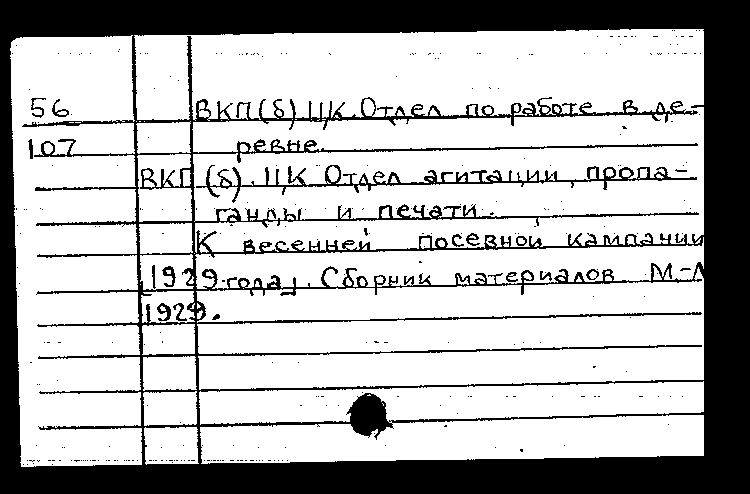 56
107
ВКП(б) ЦК. Отдел по работе в де-
ревне.
ВКП(б). ЦК Отдел агитации, пропа-
ганды и печати.
К весенней посевной кампании
[1929 года]. Сборник материалов М.-Л
1929.